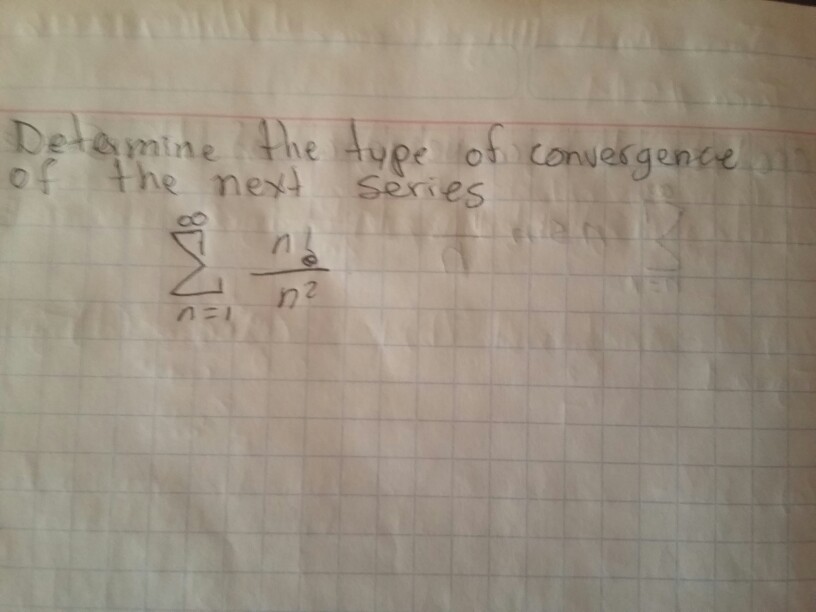 Detamine the type of convergence
of the next series
∞
∑ n! / n²
n=1